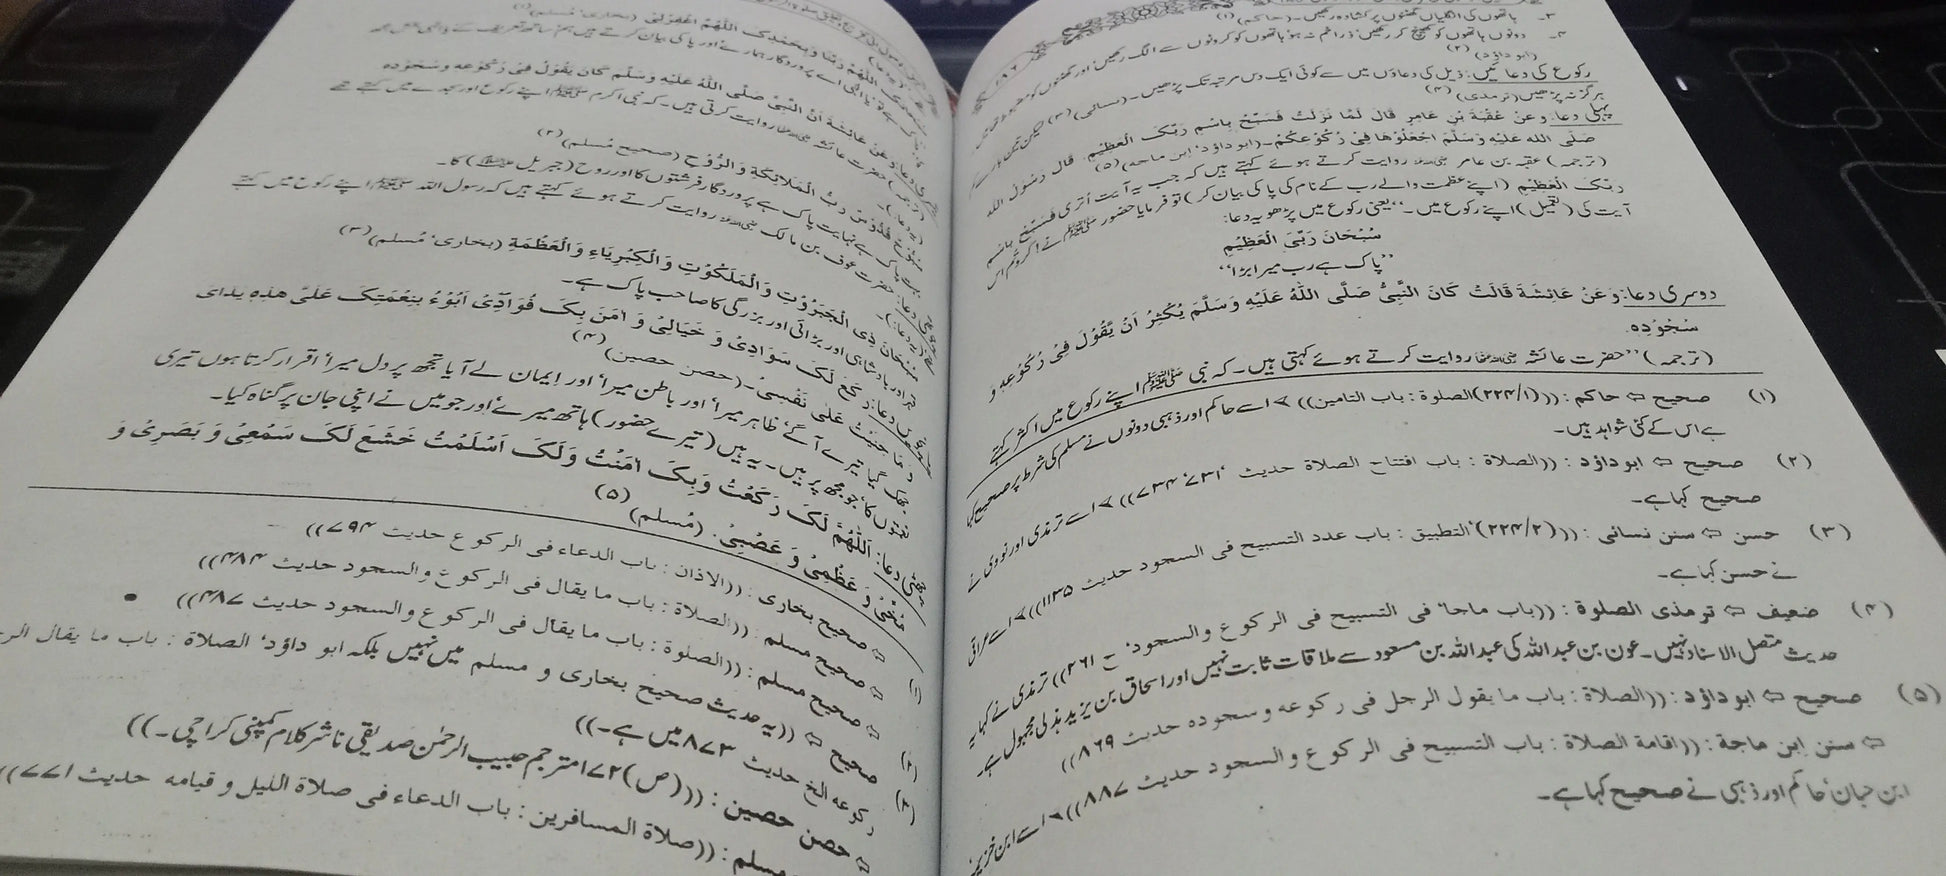 ۳۔ ہاتھوں کی انگلیاں گھٹنوں پر کشادہ رکھیں۔ (حاکم) (۱)
۴۔ دونوں ہاتھوں کو کھینچ کر رکھیں ذرا خم نہ ہو ہاتھوں کو کروٹوں سے الگ رکھیں اور گھٹنوں کو مضبوط
(ابو داؤد) (۲)
رکوع کی دعائیں: ذیل کی دعاؤں میں سے کوئی ایک دس مرتبہ تک پڑھیں۔ (نسائی) (۳) لیکن تین بار سے کم
ہرگز نہ پڑھیں (ترمذی) (۴)
پہلی دعا: وَعَنْ عُقْبَةَ بْنِ عَامِرٍ قَالَ لَمَّا نَزَلَتْ فَسَبِّحْ بِاسْمِ رَبِّكَ الْعَظِيْمِ. قَالَ رَسُوْلُ اللهِ
صَلَّى الله عَلَيْهِ وَسَلَّمَ اجْعَلُوْهَا فِىْ رُكُوْعِكُمْ۔ (ابو داؤد' ابن ماجه) (۵)
(ترجمہ) عقبہ بن عامر روایت کرتے ہوئے کہتے ہیں کہ جب یہ آیت اُتری فَسَبِّحْ بِاسْمِ
رَبِّكَ الْعَظِيْمِ (اپنے عظمت والے رب کے نام کی پاکی بیان کر) تو فرمایا حضور ﷺ نے کر وتم اس
آیت کی (تعمیل) اپنے رکوع میں۔" یعنی رکوع میں پڑھو یہ دعا:
سُبْحَانَ رَبِّىَ الْعَظِيْمِ
"پاک ہے رب میرا بڑا"
دوسری دعا: وَعَنْ عَائِشَةَ قَالَتْ كَانَ النَّبِىُّ صَلَّى اللهُ عَلَيْهِ وَسَلَّمَ يُكْثِرُ اَنْ يَّقُوْلَ فِىْ رُكُوْعِهٖ وَ
سُجُوْدِهٖ.
(ترجمہ) "حضرت عائشہ روایت کرتے ہوئے کہتی ہیں۔ کہ نبی ﷺ اپنے رکوع میں اکثر کہتے
(۱) صحیح ⇦ حاکم: (((۲۲۴/۱) الصلوة: باب التامین)) > اسے حاکم اور ذہبی دونوں نے مسلم کی شرط پر صحیح کہا
ہے اس کے کئی شواہد ہیں۔
(۲) صحیح ⇦ ابو داؤد: ((الصلاة: باب افتتاح الصلاة حدیث ۷۳۱' ۷۳۴)) > اسے ترمذی اور نووی نے
صحیح کہا ہے۔
(۳) حسن ⇦ سنن نسائی: (((۲۲۴/۲) التطبیق: باب عدد التسبیح فی السجود حدیث ۱۱۳۵)) > اسے عراقی
نے حسن کہا ہے۔
(۴) ضعیف ⇦ ترمذی الصلوة: ((باب ماجاء فی التسبیح فی الرکوع والسجود' ح ۲۶۱)) ترمذی نے کہا یہ
حدیث متصل الاسناد نہیں۔ عون بن عبداللہ کی عبداللہ بن مسعود سے ملاقات ثابت نہیں اور اسحاق بن یزید ہذلی مجہول ہے۔
(۵) صحیح ⇦ ابو داؤد: ((الصلاة: باب ما يقول الرجل فى ركوعه وسجوده حدیث ۸۶۹))
⇦ سنن ابن ماجة: ((اقامة الصلاة: باب التسبیح فی الرکوع والسجود حدیث ۸۸۷)) > اسے ابن خزیمہ'
ابن حبان' حاکم اور ذہبی نے صحیح کہا ہے۔
اللّٰهُمَّ رَبَّنَا وَبِحَمْدِكَ اللّٰهُمَّ اغْفِرْلِىْ (بخارى' مُسلم) (۱)
وَعَنْ عَائِشَةَ اَنَّ النَّبِىَّ صَلَّى اللهُ عَلَيْهِ وَسَلَّمَ كَانَ يَقُوْلُ فِىْ رُكُوْعِهٖ وَسُجُوْدِهٖ
حضرت عائشہ روایت کرتی ہیں۔ کہ نبی اکرم ﷺ اپنے رکوع اور سجدے میں کہتے تھے
سُبُّوْحٌ قُدُّوْسٌ رَبُّ الْمَلَائِكَةِ وَالرُّوْحِ (صحیح مُسلم) (۲)
پاک ہے نہایت پاک ہے پروردگار فرشتوں کا اور روح (جبریل) کا۔
حضرت عوف بن مالک روایت کرتے ہوئے کہتے ہیں کہ رسول اللہ ﷺ اپنے رکوع میں کہتے
سُبْحَانَ ذِى الْجَبَرُوْتِ وَالْمَلَكُوْتِ وَالْكِبْرِيَاءِ وَالْعَظْمَةِ (بخارى' مُسلم) (۳)
قہر اور بادشاہی اور بڑائی اور بزرگی کا صاحب پاک ہے۔
دعا: رَكَعَ لَكَ سَوَادِىْ وَ خَيَالِىْ وَ اٰمَنَ بِكَ فُوَادِىْ اَبُوْءُ بِنِعْمَتِكَ عَلَىَّ هٰذِهٖ يَدَاىَ
وَمَا جَنَيْتُ عَلٰى نَفْسِىْ۔ (حصن حصین) (۴)
جھک گیا تیرے آگے ظاہر میرا' اور باطن میرا' اور ایمان لے آیا تجھ پر دل میرا' اقرار کرتا ہوں تیری
نعمتوں کا' جو مجھ پر ہیں۔ یہ ہیں (تیرے حضور) ہاتھ میرے' اور جو میں نے اپنی جان پر گناہ کیا۔
دعا: اَللّٰهُمَّ لَكَ رَكَعْتُ وَبِكَ اٰمَنْتُ وَلَكَ اَسْلَمْتُ خَشَعَ لَكَ سَمْعِىْ وَ بَصَرِىْ وَ
مُخِّىْ وَ عَظْمِىْ وَ عَصَبِىْ. (مُسلم) (۵)
(۱) ⇦ صحیح بخاری: ((الاذان: باب الدعاء فی الرکوع حدیث ۷۹۴))
⇦ صحیح مسلم: ((الصلاة: باب ما یقال فی الرکوع والسجود حدیث ۴۸۴))
(۲) ⇦ صحیح مسلم: ((الصلوة: باب ما یقال فی الرکوع والسجود حدیث ۴۸۷))
(۳) صحیح ⇦ ((یہ حدیث صحیح بخاری و مسلم میں نہیں بلکہ ابو داؤد' الصلاة: باب ما یقال
رکوعه الخ حدیث ۸۷۳ میں ہے۔))
⇦ حصن حصین: (((ص) ۱۷۲ مترجم حبیب الرحمٰن صدیقی ناشر کلام کمپنی کراچی۔))
مسلم: ((صلاة المسافرین: باب الدعاء فی صلاة اللیل و قیامه حدیث ۷۷۱))